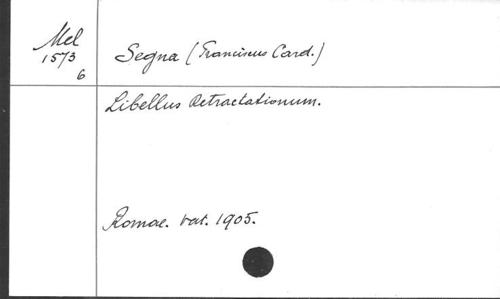 Mel
1573
6
Segna (Franciscus Card.)
Libellus Retractationum.
Romae. Vat. 1905.